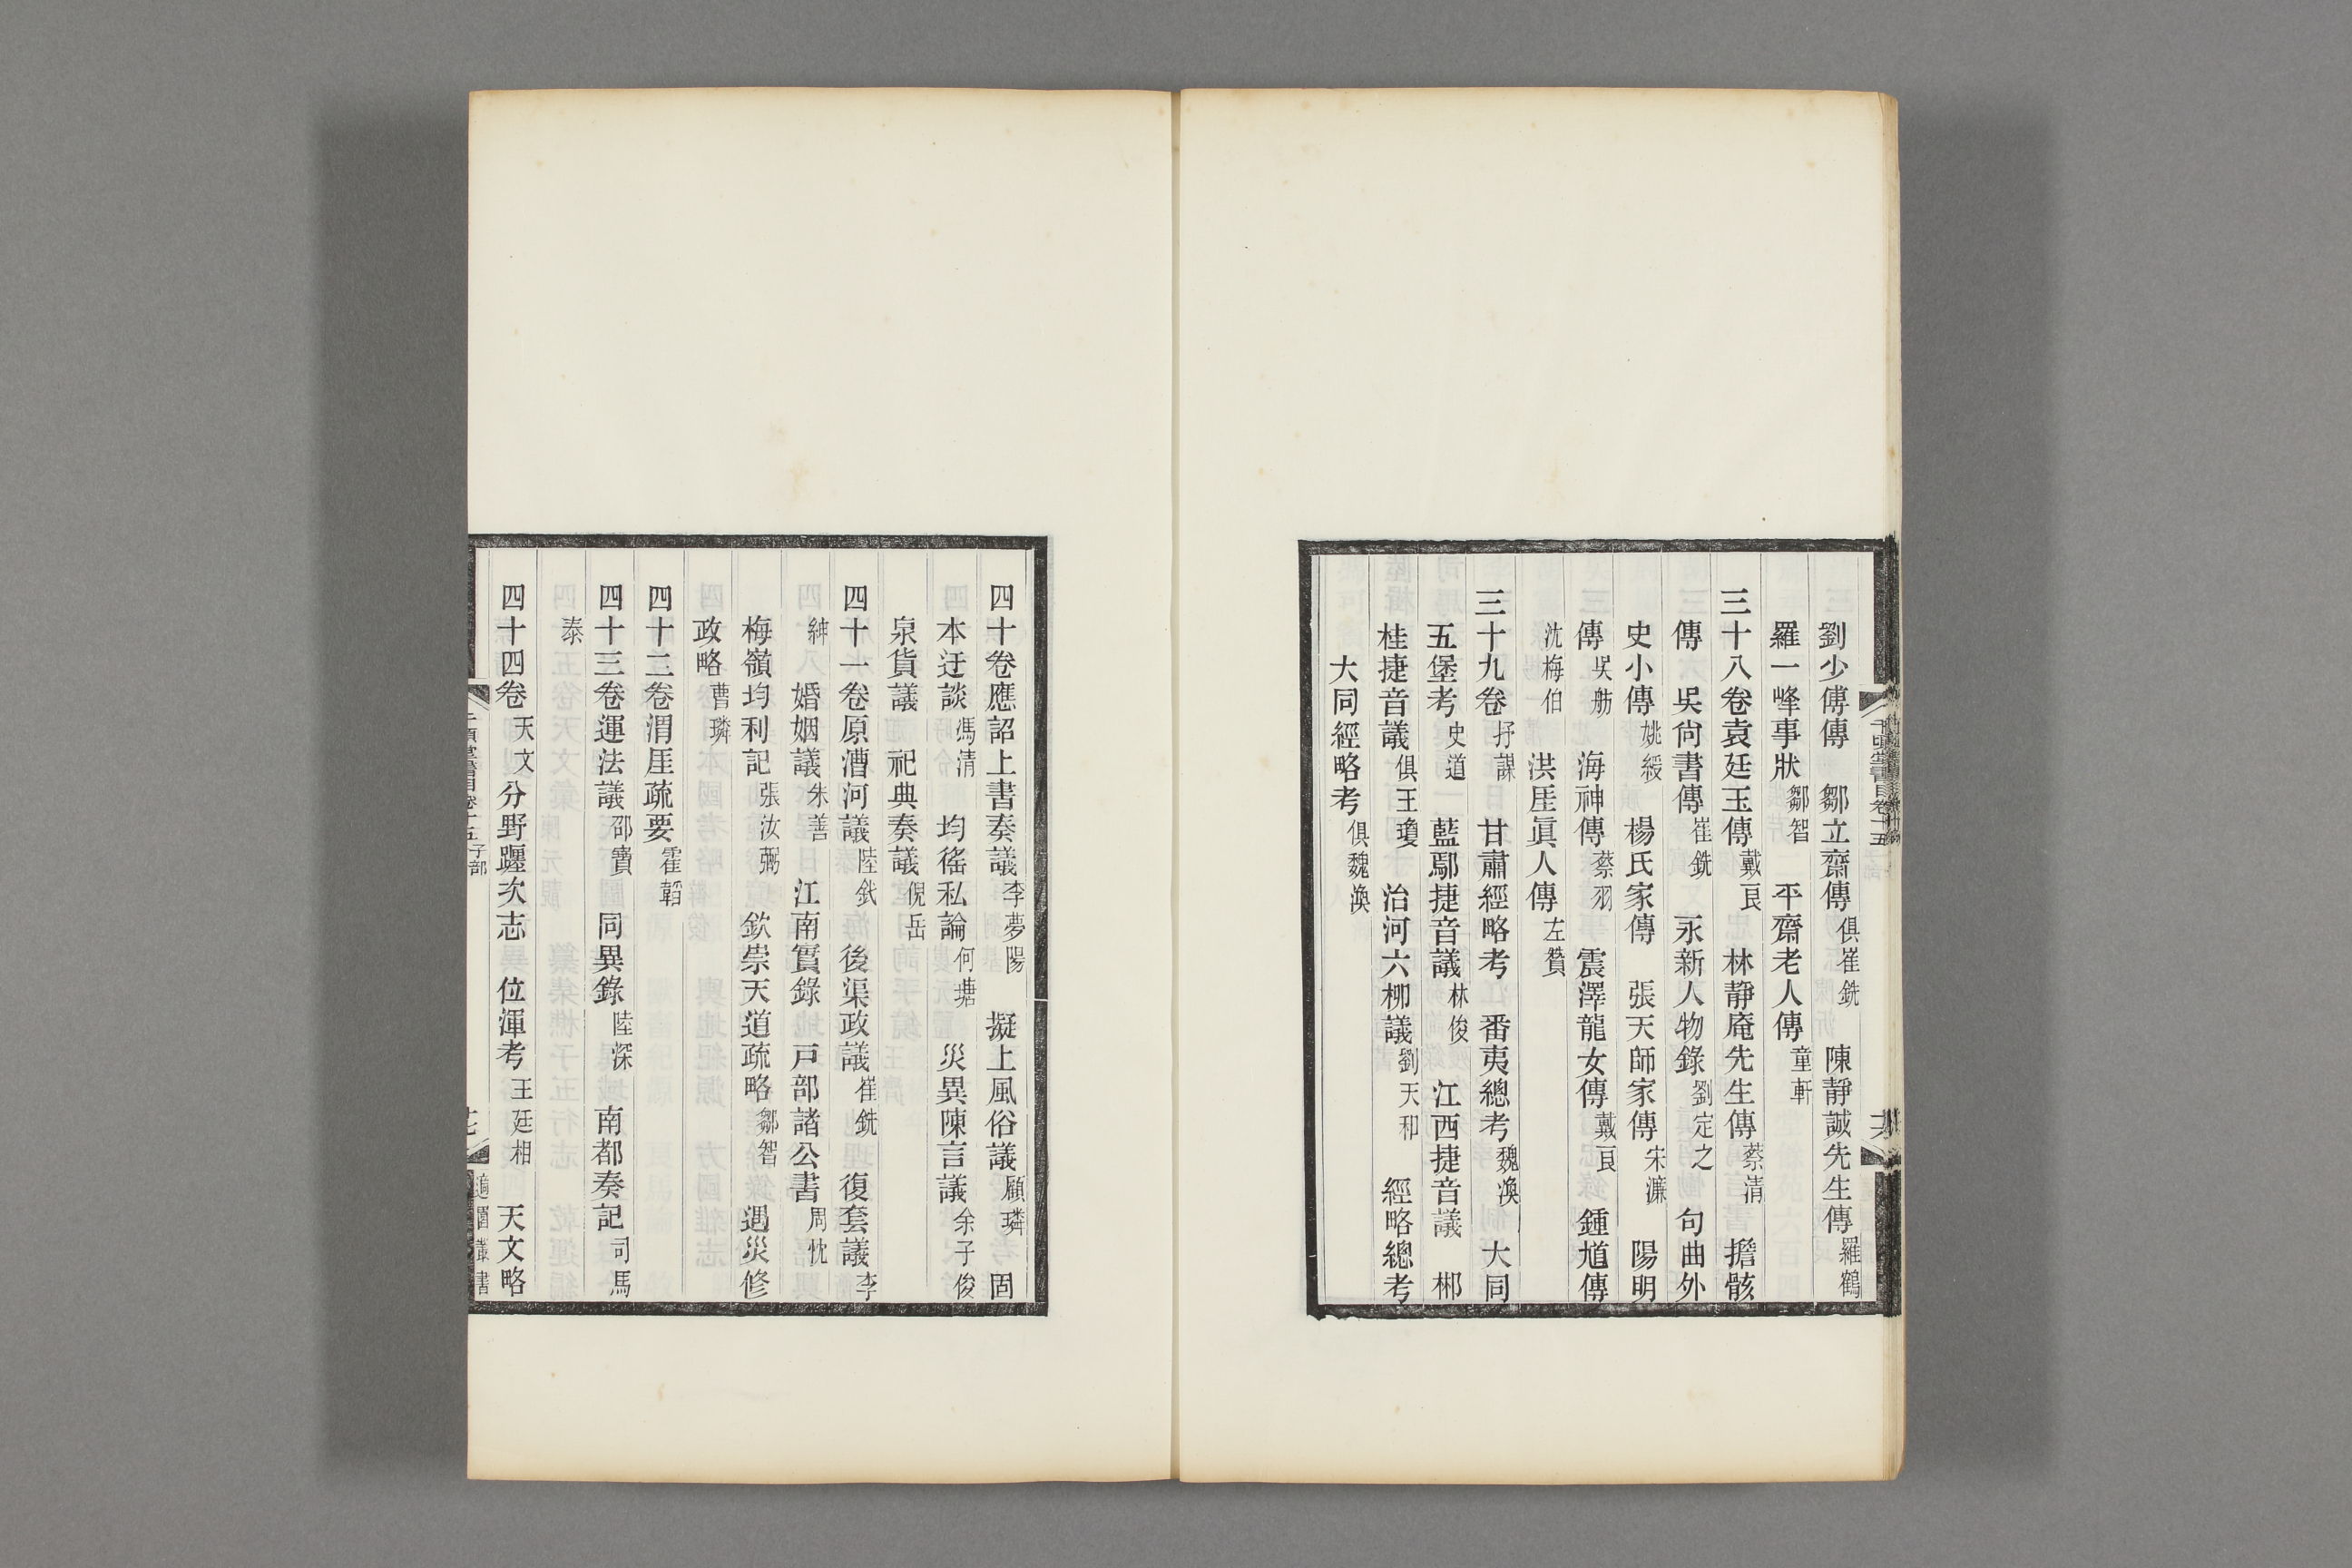 劉少傅傳　鄒立齋傳俱崔銑　陳靜誠先生傳羅鶴
羅一峰事狀鄒智　平齋老人傳童軒
三十八卷袁廷玉傳戴良　林靜庵先生傳蔡清　擔骸
傳　吳尙書傳崔銑　永新人物錄劉定之　句曲外
史小傳姚綬　楊氏家傳　張天師家傳宋濂　陽明
傳吳舫　海神傳蔡羽　震澤龍女傳戴良　鍾馗傳
沈梅伯　洪厓眞人傳左贊
三十九卷抒謀　甘肅經略考　番夷總考魏渙　大同
五堡考史道　藍鄢捷音議林俊　江西捷音議　郴
桂捷音議俱王瓊　治河六柳議劉天和　經略總考
大同經略考俱魏渙
千頃堂書目卷十五
四十卷應詔上書奏議李夢陽　擬上風俗議顧璘　固
本迂談馮清　均徭私論何瑭　災異陳言議余子俊
泉貨議　祀典奏議倪岳
四十一卷原漕河議陸釴　後渠政議崔銑　復套議李
紳　婚姻議朱善　江南實錄　戸部諸公書周忱
梅嶺均利記張汝弼　欽崇天道疏略鄒智　遇災修
政略曹璘
四十二卷渭厓疏要霍韜
四十三卷運法議邵寶　同異錄陸深　南都奏記司馬
泰
四十四卷天文　分野躔次志　位渾考王廷相　天文略
千頃堂書目卷十五子部　適園叢書